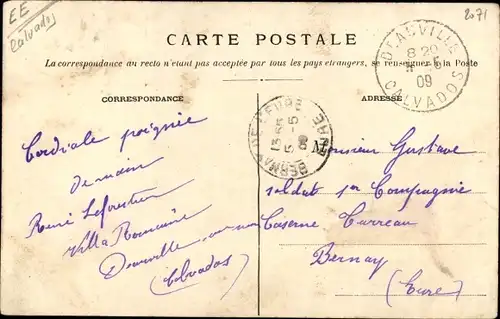 EE
Calvados
2071
CARTE POSTALE
La correspondance au recto n'étant pas acceptée par tous les pays étrangers, se renseigner à la Poste
CORRESPONDANCE
ADRESSE
DEAUVILLE
8 20
5
09
CALVADOS
BERNAY EURE
5 -5
Cordiale poignée
de main
René
Villa Romaine
Deauville sur mer
(Calvados)
Monsieur Gustave
soldat 1er Compagnie
Caserne Turreau
Bernay
(Eure)